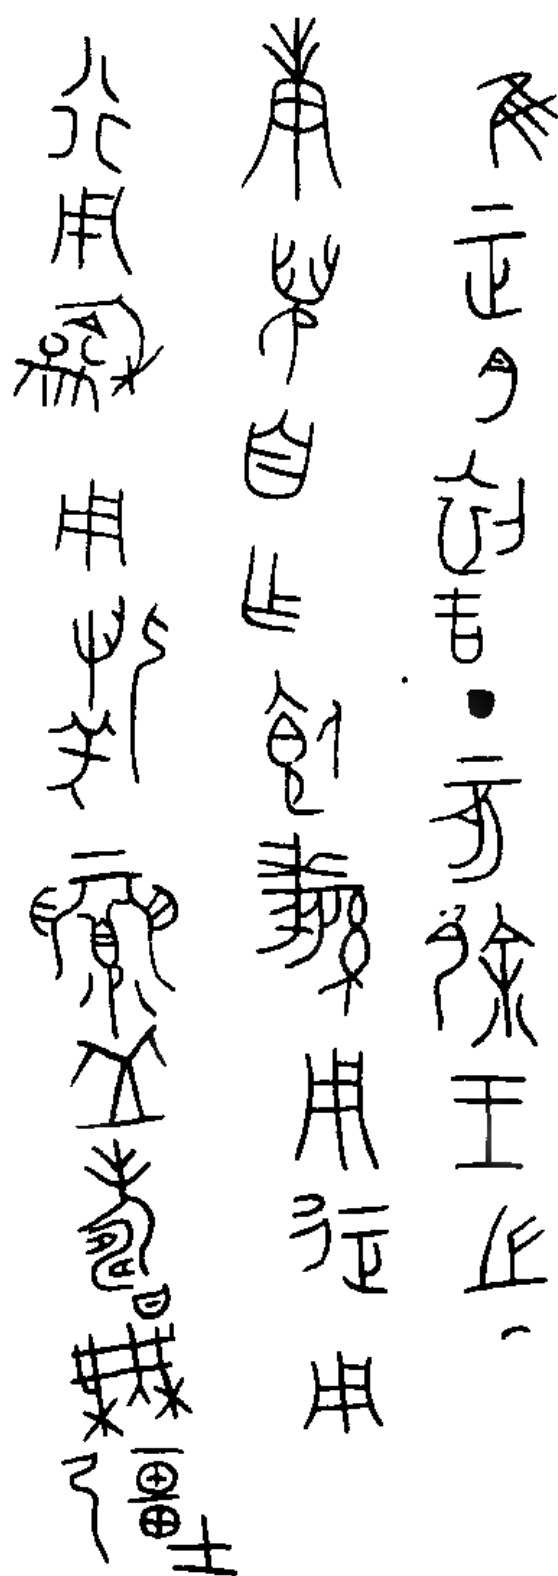 隹正月初吉丁亥䣄王之
庚兒自乍飤繁用征用
行用龢用鬻眉壽無疆